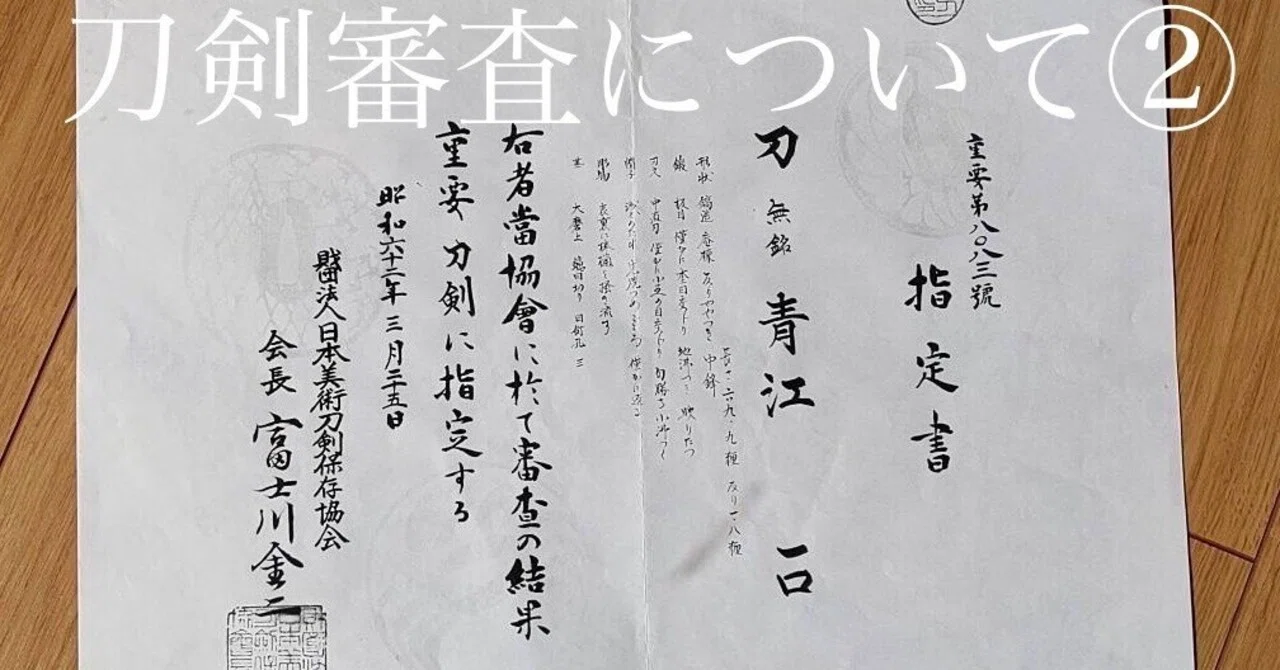 刀剣審査について②
重要第八〇八三號
指定書
刀 無銘 青江 一口
長さ 六九・九糎 反り 一・八糎
形状 鎬造 庵棟 反りややつき 中鋒
鍛 板目 僅かに杢目交じり 地沸つき 映りたつ
刃文 中直刃 僅かに小互の目交じり 匂勝ち小沸つく
帽子
彫物 表裏に棒樋を掻き流す
茎 大磨上 鑢目切り 目釘孔 三
右者當協會に於て審査の結果
重要刀剣に指定する
昭和六十二年 三月二十五日
財団法人日本美術刀剣保存協会
会長 富士川金二